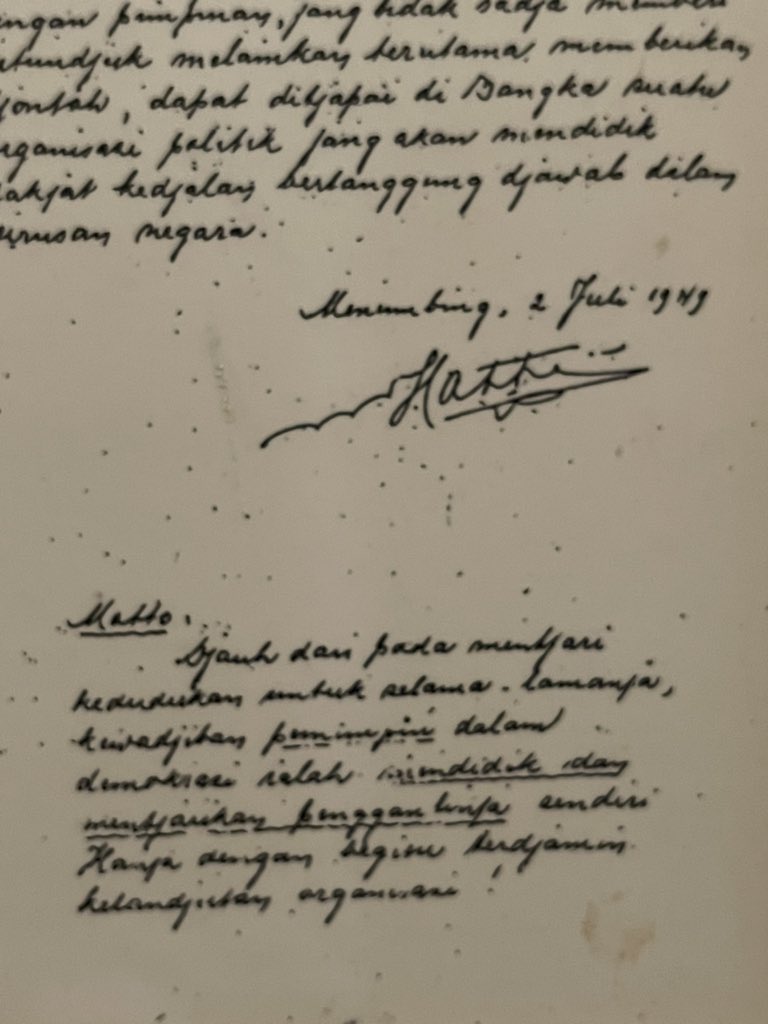 pimpinan, jang tidak sadja memberi
melainkan terutama memberikan
dapat ditjapai di Bangka suatu
politik jang akan mendidik
kedjalan bertanggung djawab dalam
negara.
Menumbing, 2 Juli 1949
Hatta
Motto.
Djauh dari pada mentjari
kedudukan untuk selama-lamanja,
kewadjiban pemimpin dalam
demokrasi ialah mendidik dan
mentjarikan penggantinja sendiri
Hanja dengan begitu terdjamin
kelandjutan organisasi!